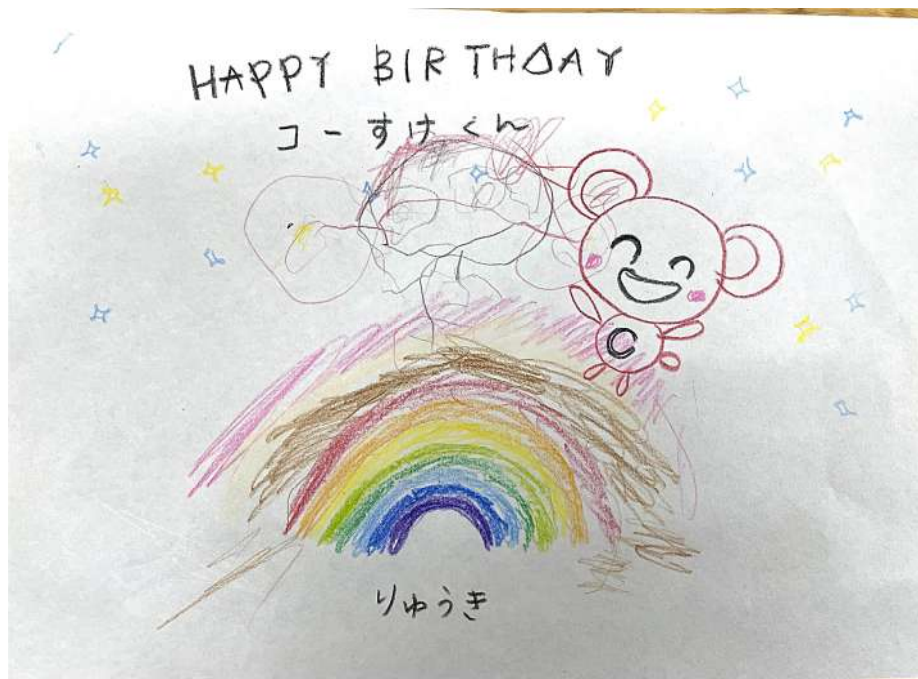 HAPPY BIRTHDAY
コーすけくん
C
りゅうき